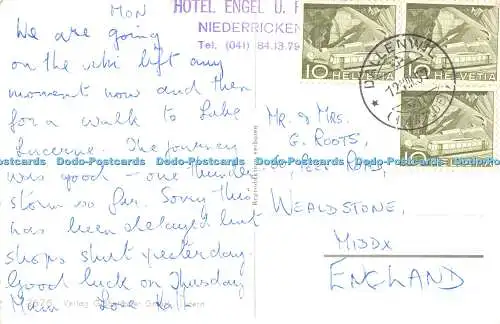 MON
HOTEL ENGEL U. P
NIEDERRICKEN
Tel. (041) 84.13.79
We are going
on the ski lift any
moment now and then
for a walk to Lake
Lucerne. The journey
was good - one thunder
storm so far. Sorry this
has been delayed but
shops shut yesterday.
Good luck on Thursday
Love
Verlag
10 HELVETIA
HELVETIA
Mr. & Mrs.
G. ROOTS,
PEEL ROAD,
WEALDSTONE,
MIDDX
ENGLAND
Dodo-Postcards Dodo-Postcards Dodo-Postcards Dodo-Postcards Dodo-Postcards